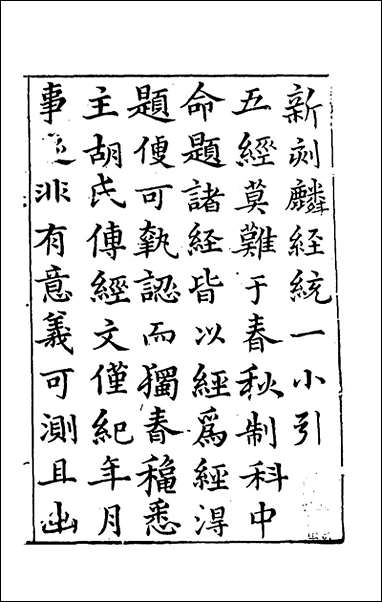 新刻麟經統一小引
五經莫難于春秋制科中
命題諸経皆以經爲經淂
題便可執認而獨春穐悉
主胡氏傳經文僅紀年月
事非有意義可測且出